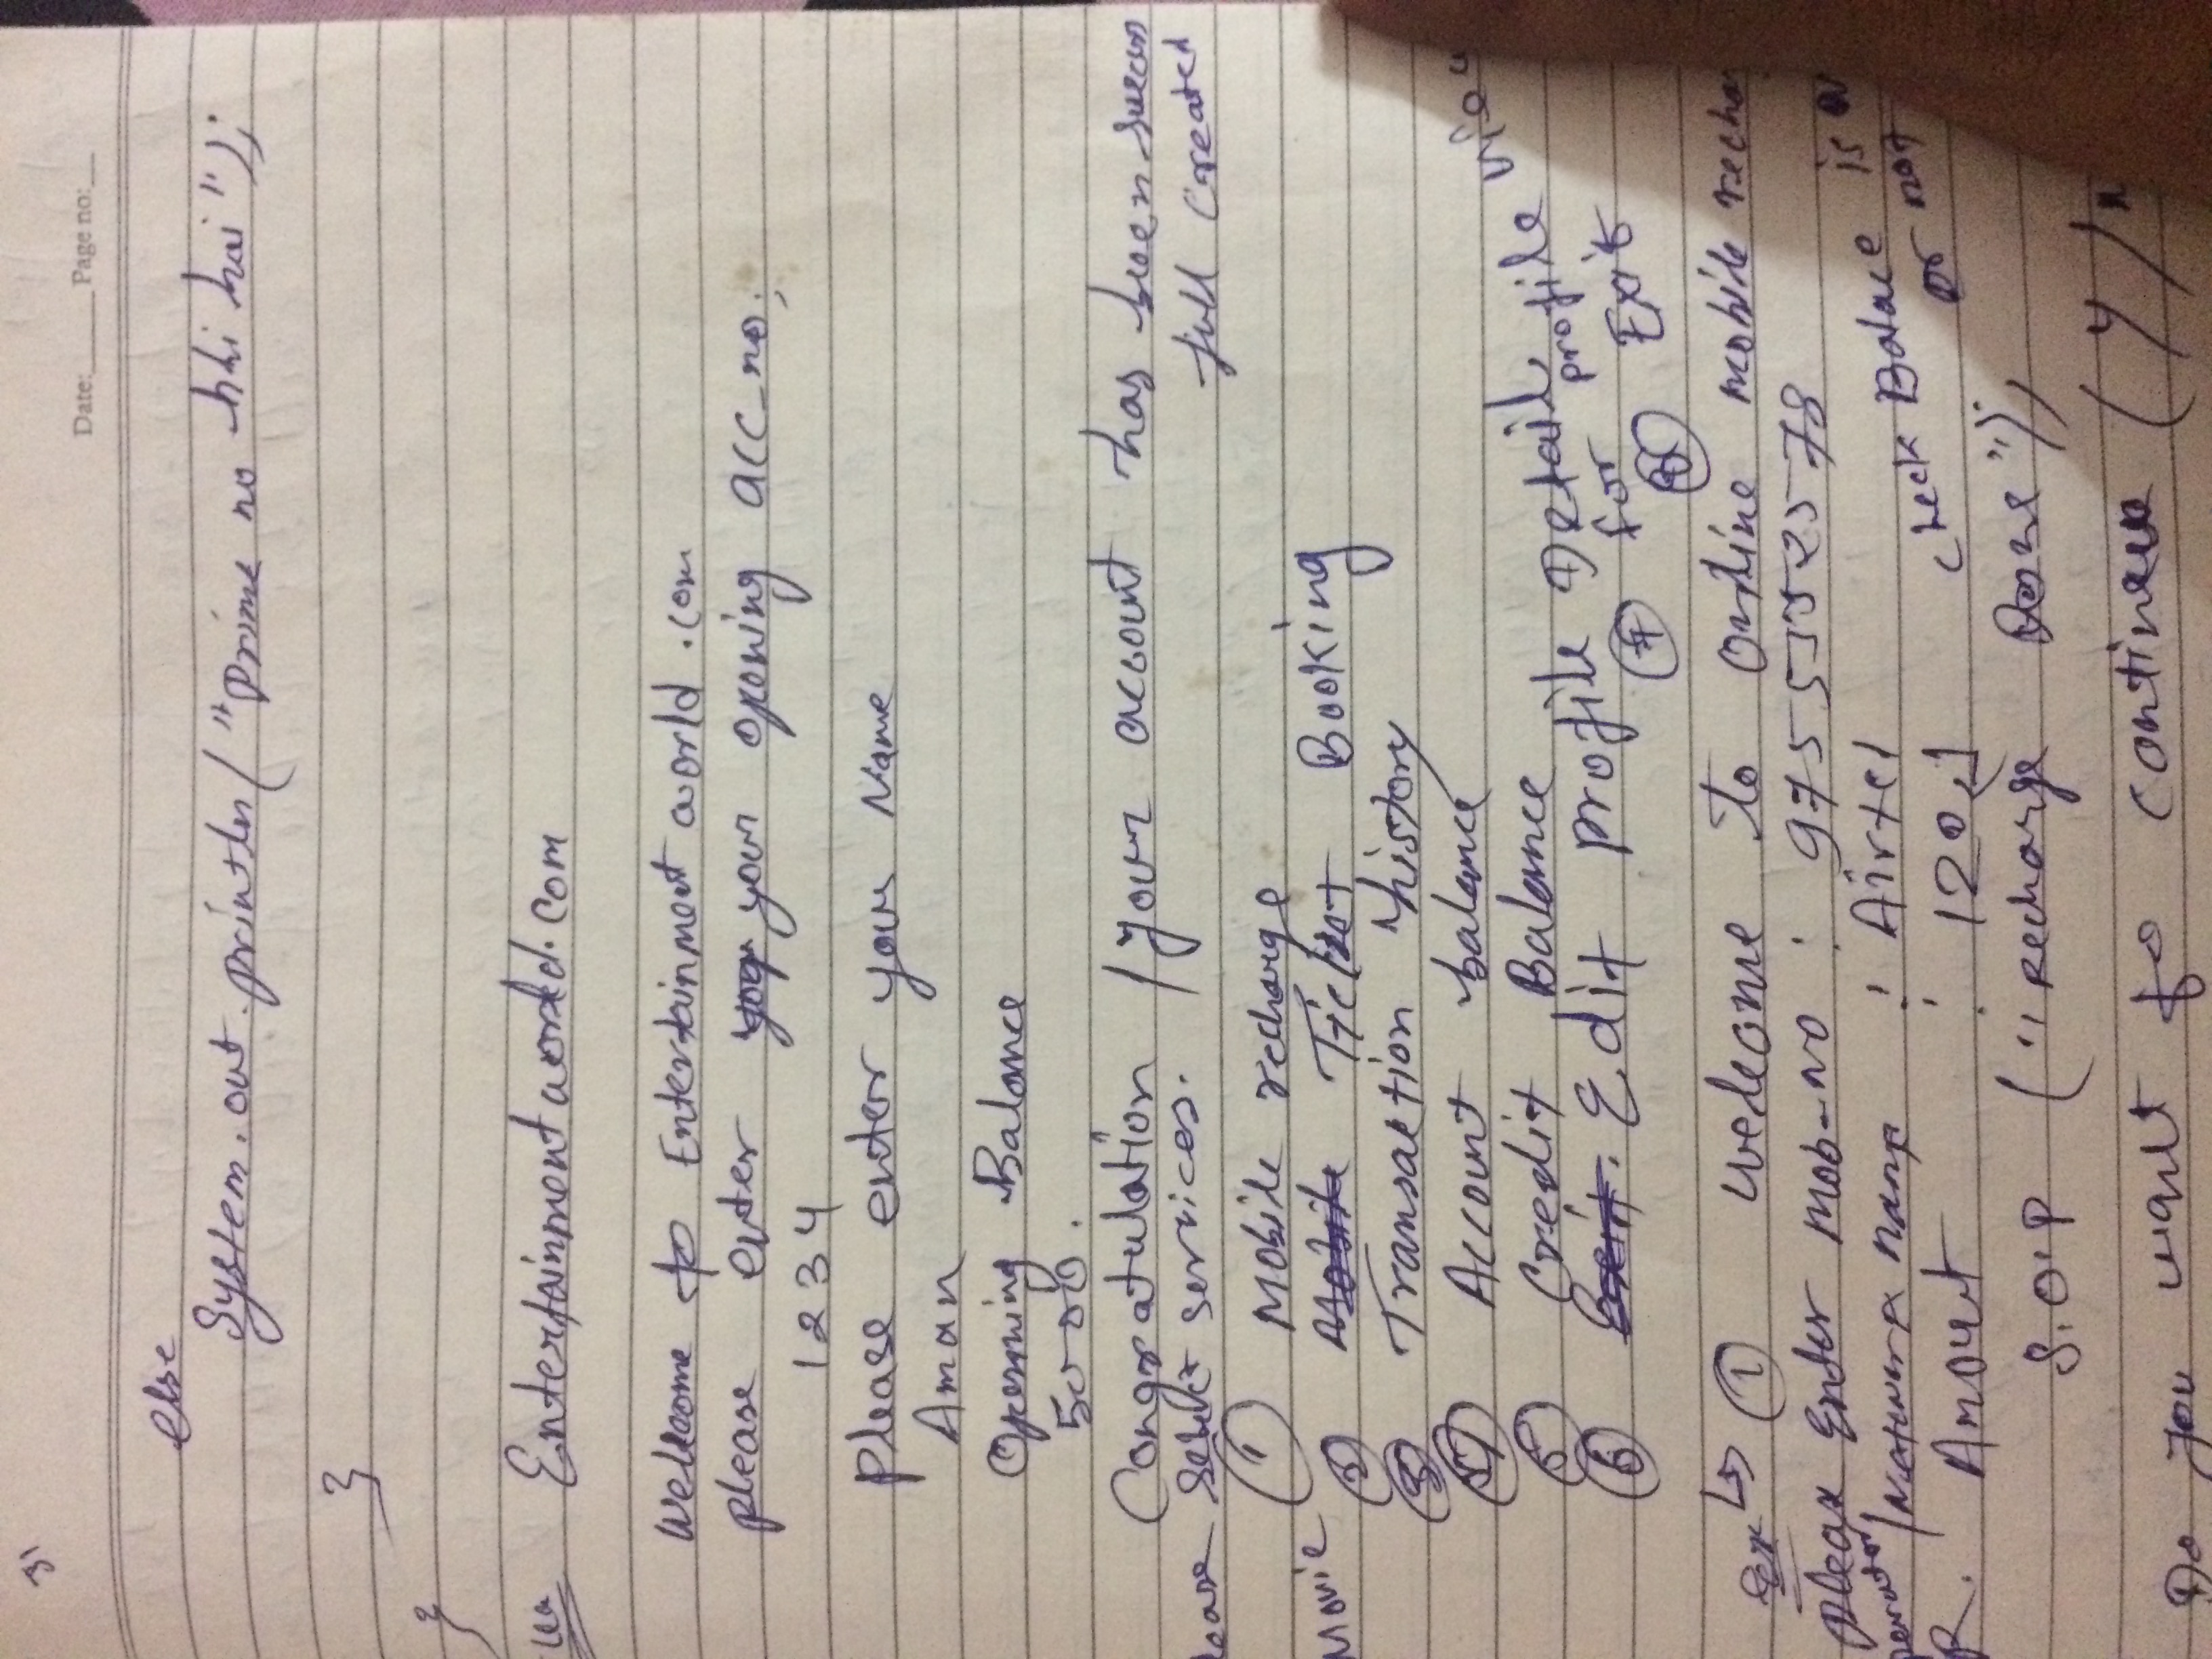 31
Date:______ Page no:___
else
System.out.println("Prime no nhi hai");
}
}
Entertainmentworld.com
Wellcome to Entertainment world .com
please enter your opening acc_no;
1234
please enter your Name
Aman
Openning Balance
5000.
Congratulation / your account has been
full created
lease Select services.
① Mobile recharge
Movie
② Mobile Ticket Booking
③ Transaction history
④ Account balance
⑤ Credit Balance
⑥ Exit. Edit profile Detail
⑦ for profile view
⑧ Exit
Ex ↳ ① welcome to online mobile recha
please Enter mob-no :
perator/Network name : Airtel
R. Amout : 120
check Balace is
or not
S.O.P ("recharge Done");
Do you want to continue (Y/n